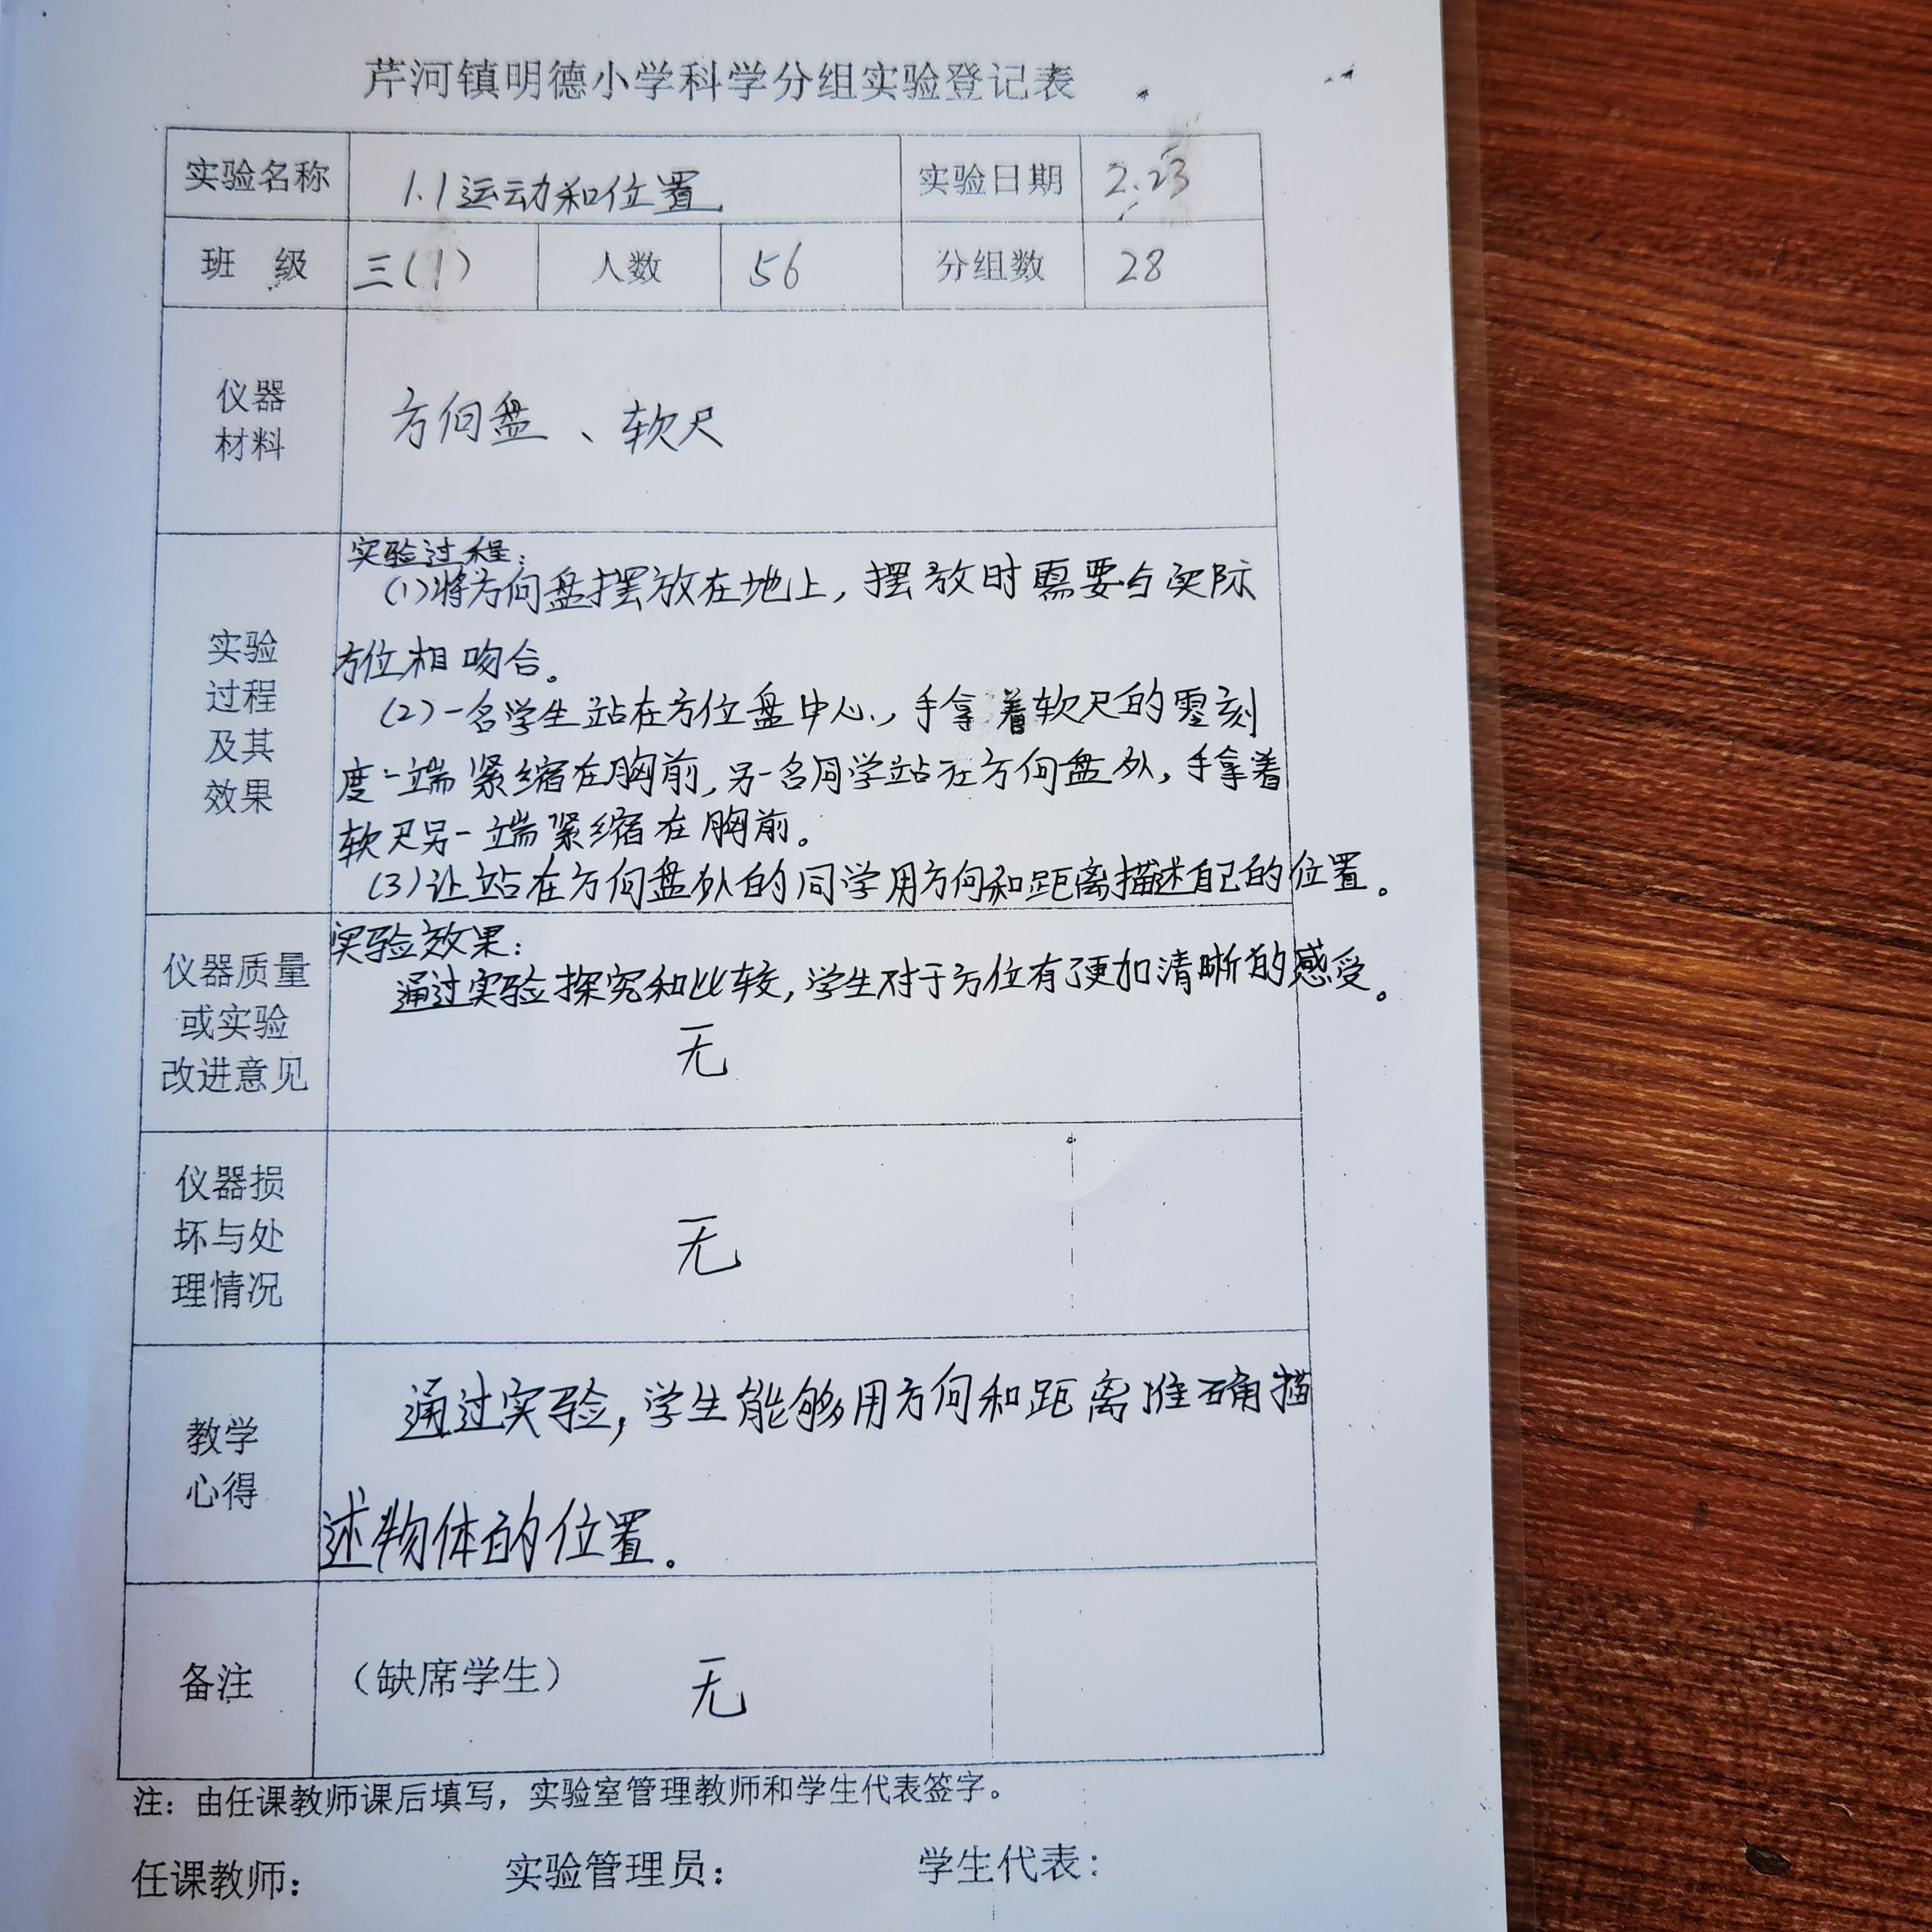 芹河镇明德小学科学分组实验登记表
实验名称 1.1运动和位置 实验日期 2.23
班 级 三(1) 人数 56 分组数 28
仪器
材料
方向盘、软尺
实验
过程
及其
效果
实验过程:
(1)将方向盘摆放在地上,摆放时需要与实际
方位相吻合。
(2)一名学生站在方位盘中心,手拿着软尺的零刻
度一端紧缩在胸前,另一名同学站在方向盘外,手拿着
软尺另一端紧缩在胸前。
(3)让站在方向盘外的同学用方向和距离描述自己的位置。
仪器质量
或实验
改进意见
实验效果:
通过实验探究和比较,学生对于方位有了更加清晰的感受。
无
仪器损
坏与处
理情况
无
教学
心得
通过实验,学生能够用方向和距离准确描
述物体的位置。
备注 (缺席学生) 无
注:由任课教师课后填写,实验室管理教师和学生代表签字。
任课教师: 实验管理员: 学生代表: